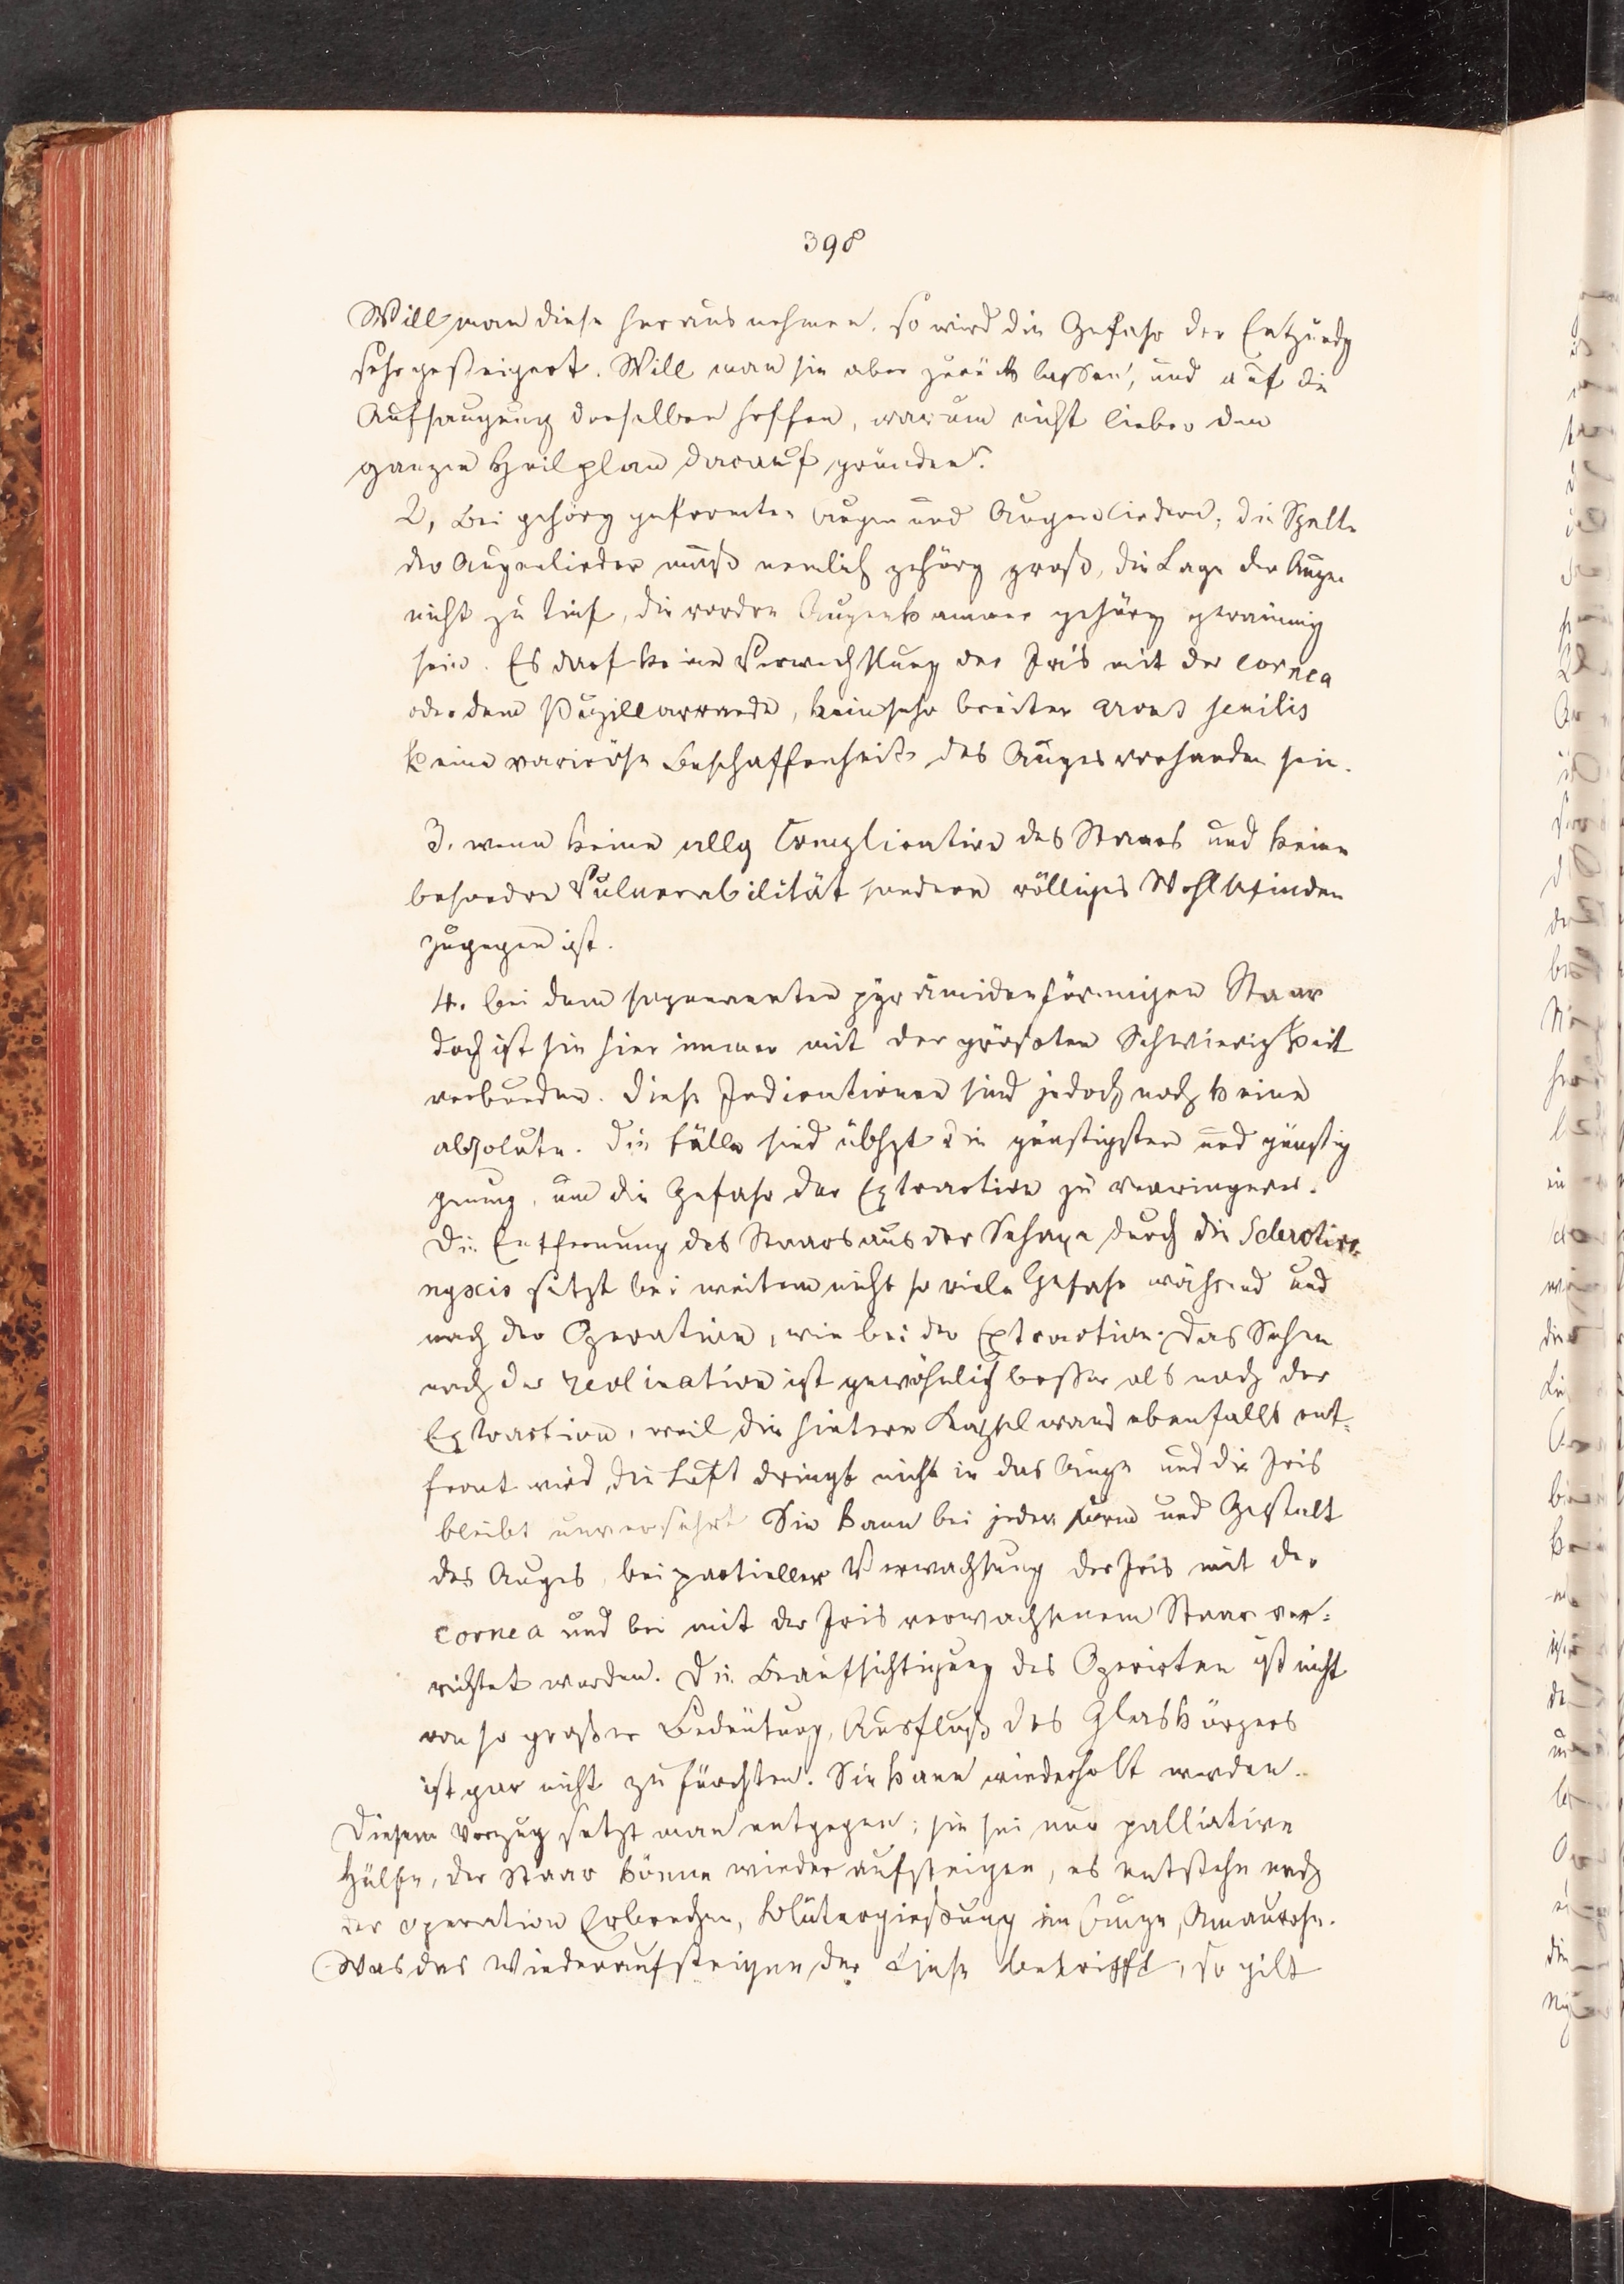 398
Will man diese heraus nehmen, so wird die Gefahr der Entzündg
sehr gesteigert. Will man sie aber zurück lassen, und auf die
Aufsaugung derselben hoffen, warum nicht lieber den
ganzen Heilplan darauf gründen?
2, bei gehörg geformten Augen und Augenliedern; die Spalte
der Augenlieder muß nemlich gehörg groß, die Lage der Augen
nicht zu tief, die vordre Augenkammer gehörg geräumig
sein. Es darf keine Verwachsung der Iris mit der cornea
oder dem Pupillarrande, kein sehr breiter arcus senilis
keine varicöse Beschaffenheit des Auges vorhanden sein.
3. wenn keine allg Complication des Staars und keine
besondre Vulnerabilität sondern völliges Wohlbefinden
zugegen ist.
4. bei dem sogenannten pyramidenförmigen Staar
doch ist sie hier immer mit der größten Schwierigkeit
verbunden. Diese Indicationen sind jedoch noch keine
absolute. Die Fälle sind übhpt die günstigsten und günstig
genug, um die Gefahr der Extraction zu verringern.
Die Entfernung des Staars aus der Sehaxe durch die Sclerotico-
nyxis setzt bei weitem nicht so viele Gefahr während und
nach der Operation, wie bei der Extraction. Das Sehen
nach der reclination ist gewöhnlich besser als nach der
Extraction, weil die hintere Kapselwand ebenfalls ent=
fernt wird, die Luft dringt nicht in das Auge und die Iris
bleibt unversehrt Sie kann bei jeder Form und Gestalt
des Auges, bei partieller Verwachsung der Iris mit der
cornea und bei mit der Iris verwachsenem Staar ver=
richtet werden. Die Beaufsichtigung des Operirten ist nicht
von so großer Bedeutung, Ausfluß des Glaskörpers
ist gar nicht zu fürchten. Sie kann wiederholt werden.
Diesem Vorzug setzt man entgegen; sie sei nur palliative
Hülfe, der Staar könne wieder aufsteigen, es entstehe nach
der operation Erbrechen, Blutergießung im Auge, Amaurose.
Was das Wiederaufsteigen der Linse betrifft, so gilt